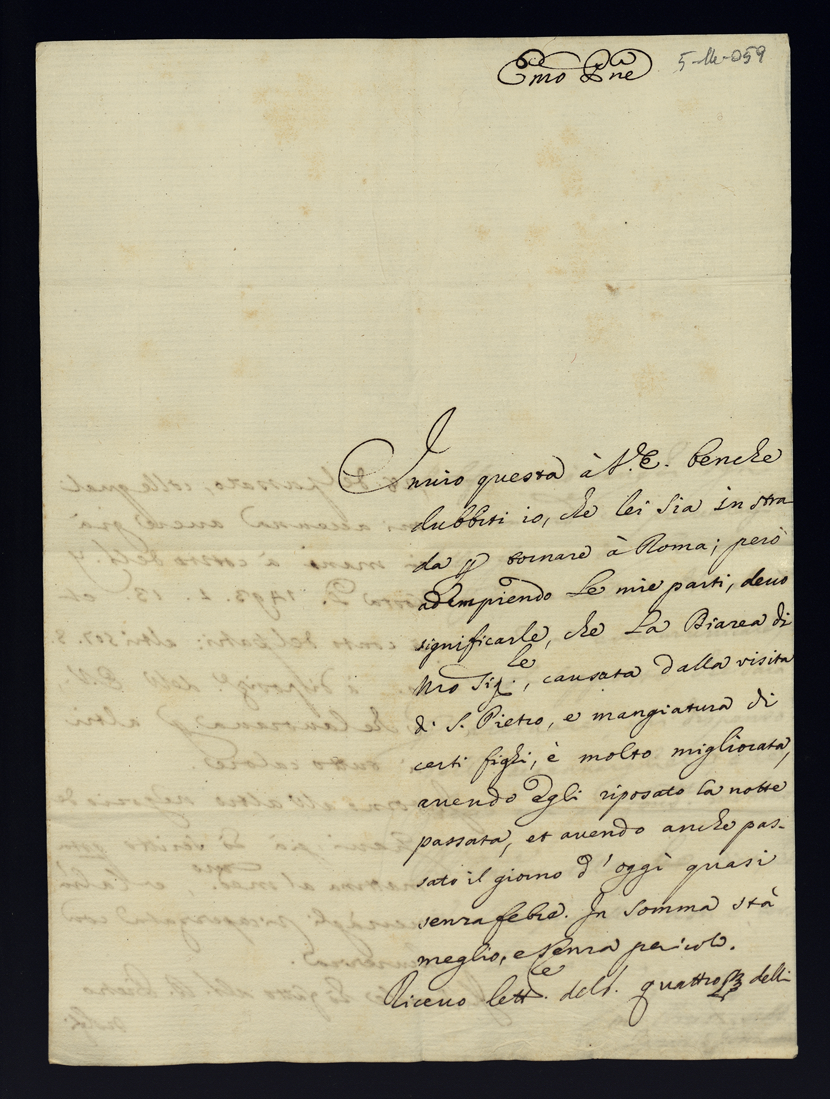 Emo Pne
5-M-059
Inuio questa à V. E. benche
dubbiti io, che lei sia in stra
da p tornare à Roma; però
adempiendo Le mie parti, deuo
significarle, che La Diarea di
Nro Sigle., causata dalla visita
di S. Pietro, e mangiatura di
certi fighi, è molto migliorata,
auendo Egli riposato la notte
passata, et auendo anche pas-
sato il giorno d'oggi quasi
senza febre. In somma stà
meglio, e senza pericolo.
Riceuo lette. quattro delli